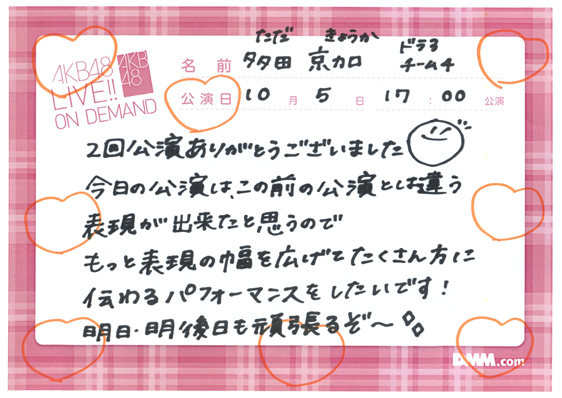 AKB48
LIVE!!
ON DEMAND
AKB
48
ただ きょうか
名前 多田 京加 ドラ3 チーム4
公演日 10月 5日 17:00 公演
2回公演ありがとうございました
今日の公演は、この前の公演とは違う
表現が出来たと思うので
もっと表現の幅を広げてたくさん方に
伝わるパフォーマンスをしたいです!
明日・明後日も頑張るぞ〜
DMM.com